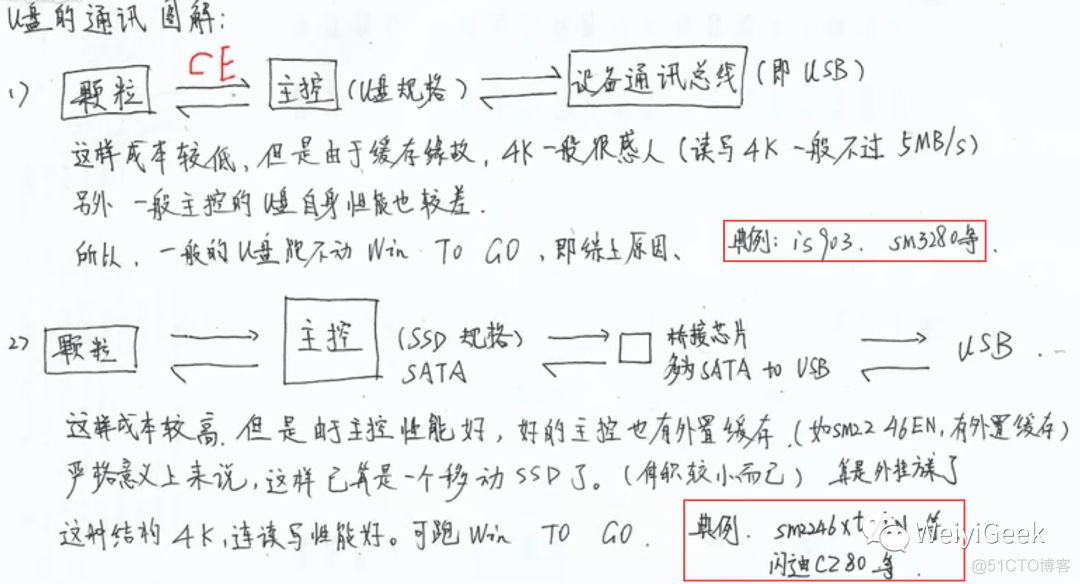 U盘的通讯图解:
1) 颗粒 CE 主控 (U盘规格) 设备通讯总线 (即 USB)
这样成本较低, 但是由于缓存缘故, 4K一般很感人 (读写4K一般不过 5MB/s)
另外 一般主控的U盘自身性能也较差.
所以、一般的U盘跑不动 Win TO GO、即综上原因、 典例: is903、sm3280等.
2) 颗粒 主控 (SSD 规格) SATA 桥接芯片 多为SATA to USB USB
这样成本较高. 但是由于主控性能好, 好的主控也有外置缓存. (如sm2246EN, 有外置缓存)
严格意义上来说, 这样已算是一个移动SSD了。(体积较小而已) 算是外挂方案了
这种结构 4K, 连读写性能好。可跑 Win TO GO. 典例. sm2246xt 等
闪迪CZ80等
WeiyiGeek
@51CTO博客